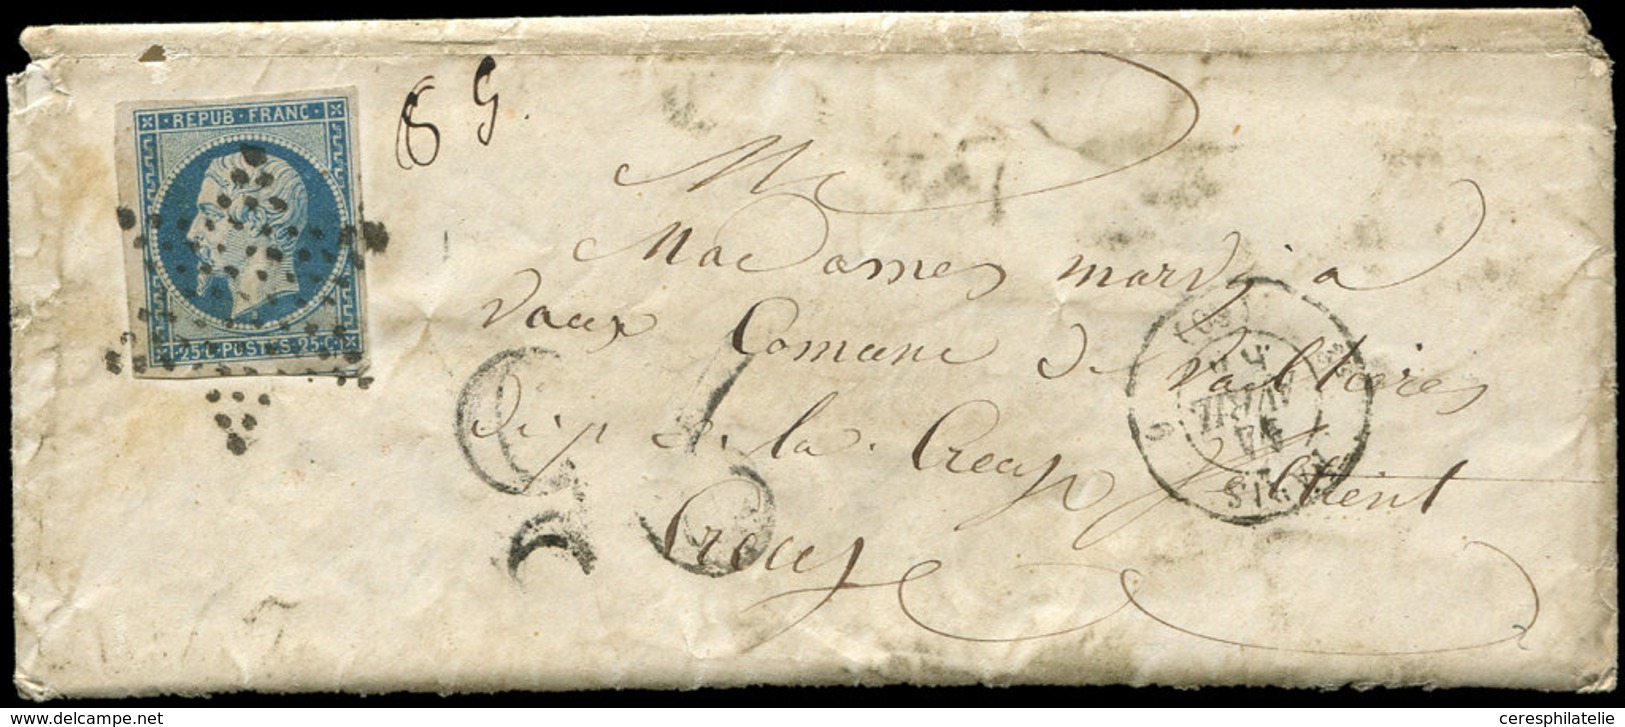 REPUB · FRANC ·
25 C · POSTES · 25 C
8 G.
M
Madames mardi a
vaux Comune de vallieires
dep de la Creusse
Creuse
(60)
AVRIL
PARIS
25
delcampe.net
ceresphilatelie